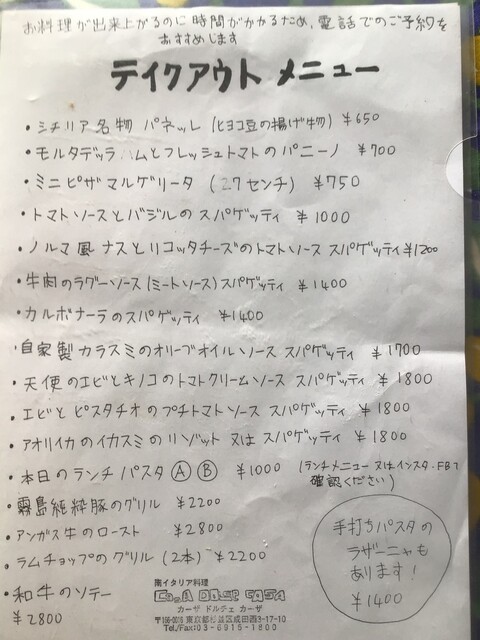 お料理が出来上がるのに時間がかかるため、電話でのご予約を
おすすめします
テイクアウト メニュー
・シチリア名物 パネッレ (ヒヨコ豆の揚げ物) ¥650
・モルタデッラハムとフレッシュトマトのパニーノ ¥700
・ミニピザマルゲリータ (27センチ) ¥750
・トマトソースとバジルのスパゲッティ ¥1000
・ノルマ風ナスとリコッタチーズのトマトソース スパゲッティ ¥1200
・牛肉のラグーソース(ミートソース)スパゲッティ ¥1400
・カルボナーラのスパゲッティ ¥1400
・自家製カラスミのオリーブオイルソース スパゲッティ ¥1700
・天使のエビとキノコのトマトクリームソース スパゲッティ ¥1800
・エビとピスタチオのプチトマトソース スパゲッティ ¥1800
・アオリイカのイカスミのリゾット 又は スパゲッティ ¥1800
・本日のランチパスタ Ⓐ Ⓑ ¥1000 (ランチメニュー又はインスタ・FBで
確認ください)
・霧島純粋豚のグリル ¥2200
・アンガス牛のロースト ¥2800
・ラムチョップのグリル (2本) ¥2200
・和牛のソテー
¥2800
手打ちパスタの
ラザーニャも
あります!
¥1400
南イタリア料理
CASA DOLCE CASA
カーザ ドルチェ カーザ
〒166-0015 東京都杉並区成田西3-17-10
Tel./Fax:03-6915-1800